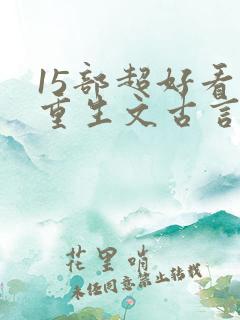 15部超好看
重生文古言
花里哨
未经同意禁止转载